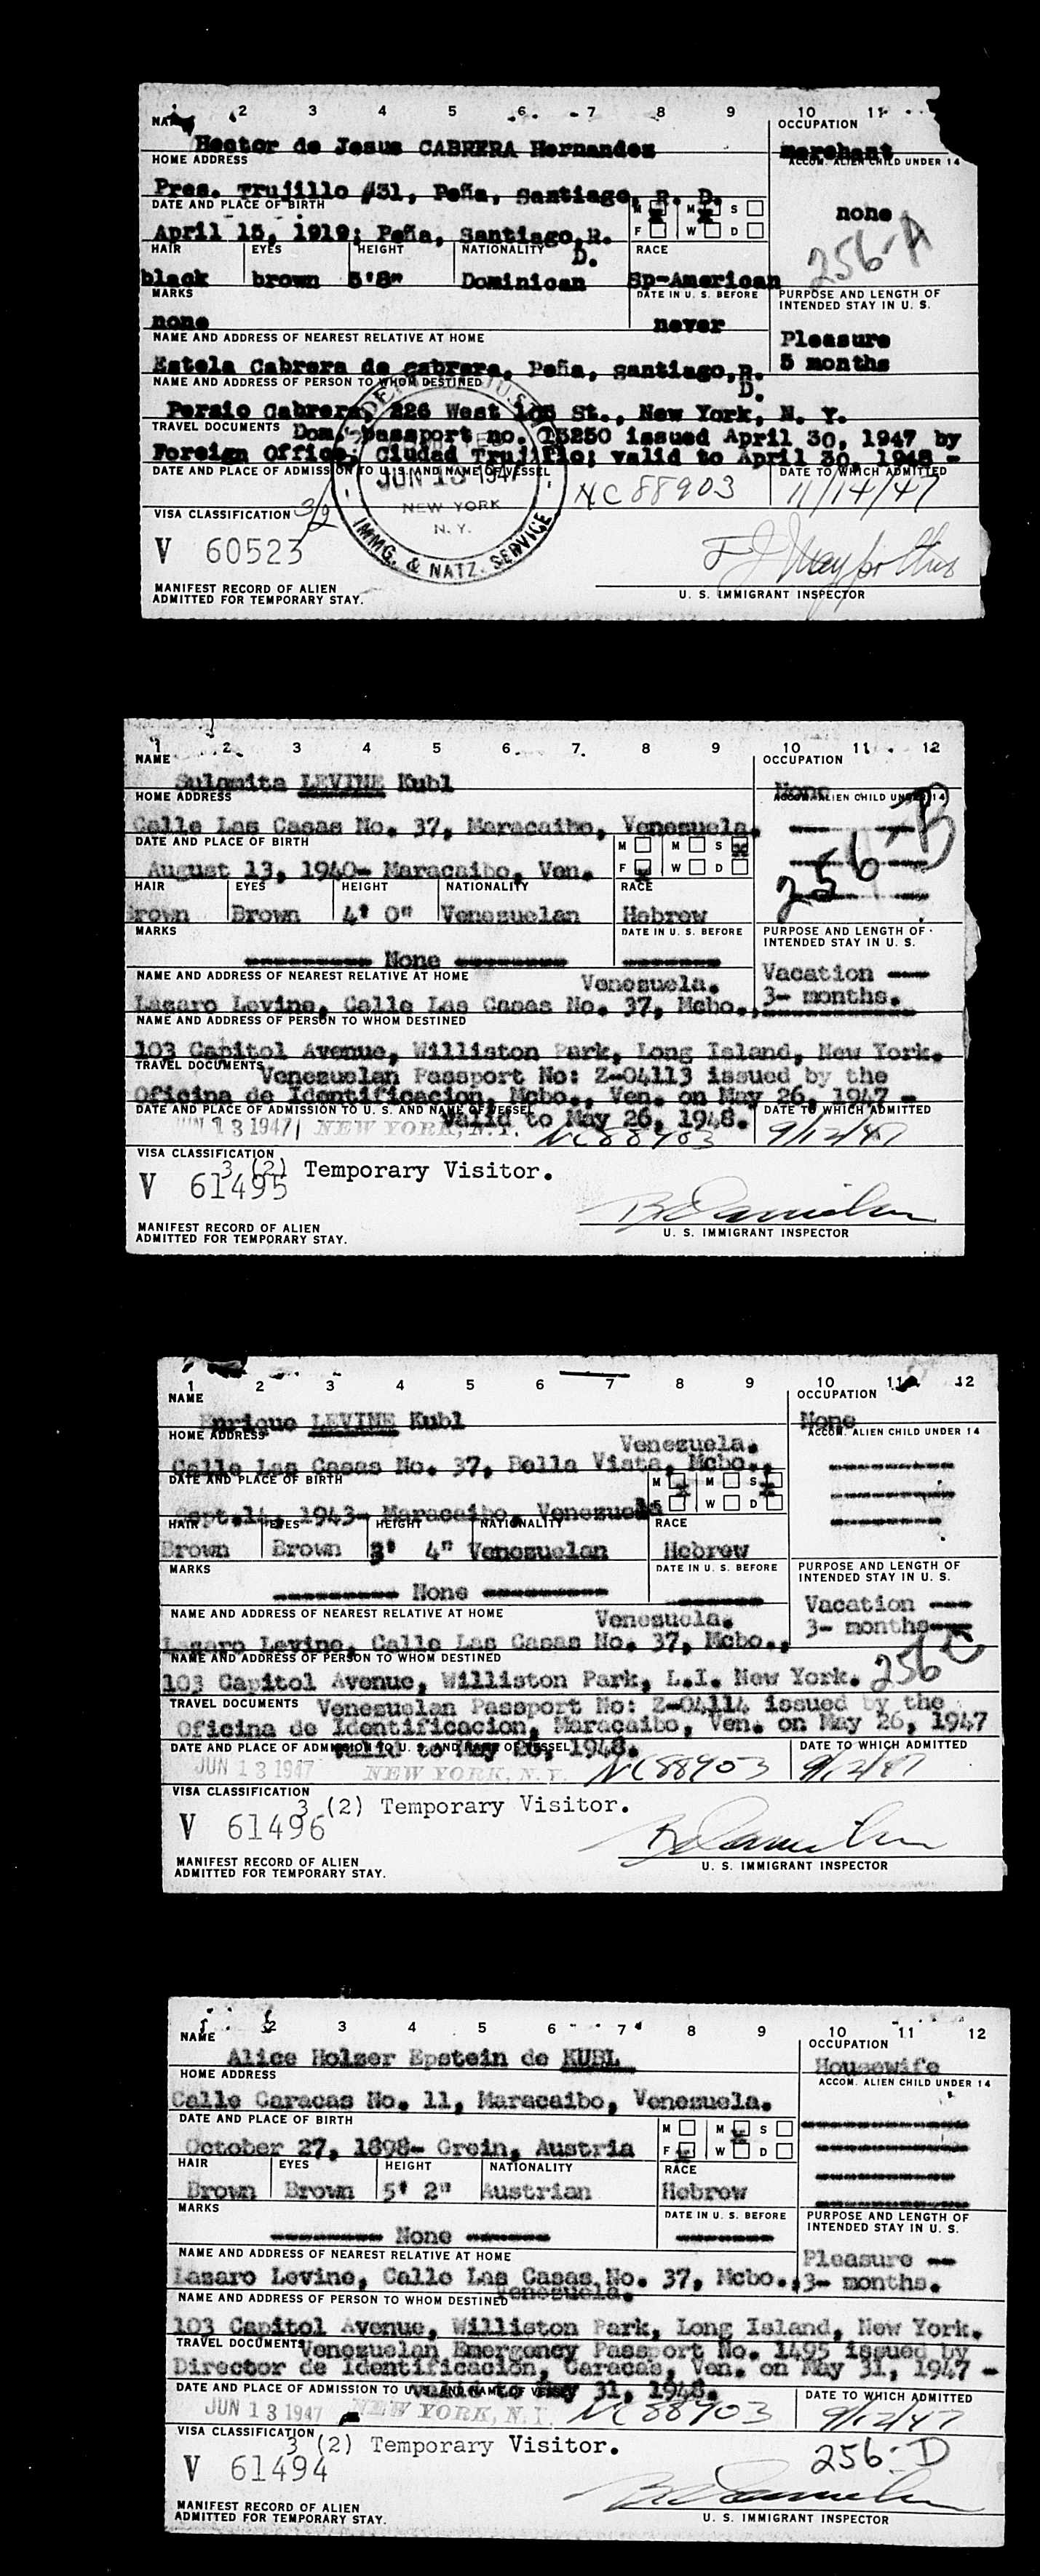 1 2 3 4 5 6 7 8 9 10 11
NAME
OCCUPATION
Hector de Jesus CABRERA Hernandez
merchant
HOME ADDRESS
ACCOM. ALIEN CHILD UNDER 14
Pres. Trujillo #31, Peña, Santiago, R. D.
DATE AND PLACE OF BIRTH
M M S
none
April 15, 1919; Peña, Santiago, R.
D.
F W D
256-A
HAIR EYES HEIGHT NATIONALITY RACE
black brown 5'8" Dominican Sp-American
MARKS
DATE IN U. S. BEFORE
PURPOSE AND LENGTH OF
INTENDED STAY IN U. S.
none
never
Pleasure
5 months
NAME AND ADDRESS OF NEAREST RELATIVE AT HOME
Estela Cabrera de cabrera, Peña, santiago, R.
D.
NAME AND ADDRESS OF PERSON TO WHOM DESTINED
Persio Cabrera, 226 West 105 St., New York, N. Y.
TRAVEL DOCUMENTS Dom. passport no. 13250 issued April 30, 1947 by
Foreign Office, Ciudad Trujillo; valid to April 30, 1948 -
DATE AND PLACE OF ADMISSION TO U. S. AND NAME OF VESSEL
DATE TO WHICH ADMITTED
JUN 13 1947
NEW YORK
N. Y.
IMMG. & NATZ. SERVICE
NC 88903
11/14/47
VISA CLASSIFICATION 3/2
V 60523
MANIFEST RECORD OF ALIEN
ADMITTED FOR TEMPORARY STAY.
U. S. IMMIGRANT INSPECTOR
1 2 3 4 5 6 7 8 9 10 11 12
NAME
OCCUPATION
Sulamita LEVINE Kubl
None
HOME ADDRESS
ACCOM. ALIEN CHILD UNDER 14
Calle Las Casas No. 37, Maracaibo, Venezuela.
DATE AND PLACE OF BIRTH
M M S
August 13, 1940- Maracaibo, Ven.
F W D
256-B
HAIR EYES HEIGHT NATIONALITY RACE
Brown Brown 4' 0" Venezuelan Hebrew
MARKS
DATE IN U. S. BEFORE
PURPOSE AND LENGTH OF
INTENDED STAY IN U. S.
None
Vacation
3- months.
NAME AND ADDRESS OF NEAREST RELATIVE AT HOME
Venezuela.
Lazaro Levine, Calle Las Casas No. 37, Mcbo.,
NAME AND ADDRESS OF PERSON TO WHOM DESTINED
103 Capitol Avenue, Williston Park, Long Island, New York.
TRAVEL DOCUMENTS Venezuelan Passport No: Z-04113 issued by the
Oficina de Identificacion, Mcbo., Ven. on May 26, 1947 -
DATE AND PLACE OF ADMISSION TO U. S. AND NAME OF VESSEL
valid to May 26, 1948.
DATE TO WHICH ADMITTED
JUN 13 1947 NEW YORK, N.Y. NC88903 9/12/47
VISA CLASSIFICATION
3 (2) Temporary Visitor.
V 61495
MANIFEST RECORD OF ALIEN
ADMITTED FOR TEMPORARY STAY.
U. S. IMMIGRANT INSPECTOR
1 2 3 4 5 6 7 8 9 10 11 12
NAME
OCCUPATION
Enrique LEVINE Kubl
None
HOME ADDRESS
ACCOM. ALIEN CHILD UNDER 14
Venezuela.
Calle Las Casas No. 37, Bella Vista, Mcbo.,
DATE AND PLACE OF BIRTH
M M S
Sept.14, 1943- Maracaibo, Venezuela
F W D
HAIR EYES HEIGHT NATIONALITY RACE
Brown Brown 3' 4" Venezuelan Hebrew
MARKS
DATE IN U. S. BEFORE
PURPOSE AND LENGTH OF
INTENDED STAY IN U. S.
None
Vacation
3- months
NAME AND ADDRESS OF NEAREST RELATIVE AT HOME
Venezuela.
Lazaro Levine, Calle Las Casas No. 37, Mcbo.,
NAME AND ADDRESS OF PERSON TO WHOM DESTINED
103 Capitol Avenue, Williston Park, L.I. New York.
256 C
TRAVEL DOCUMENTS Venezuelan Passport No: Z-04114 issued by the
Oficina de Identificacion, Maracaibo, Ven. on May 26, 1947
DATE AND PLACE OF ADMISSION TO U. S. AND NAME OF VESSEL
valid to May 26, 1948.
DATE TO WHICH ADMITTED
JUN 13 1947 NEW YORK, N.Y. NC88903 9/12/47
VISA CLASSIFICATION
3 (2) Temporary Visitor.
V 61496
MANIFEST RECORD OF ALIEN
ADMITTED FOR TEMPORARY STAY.
U. S. IMMIGRANT INSPECTOR
1 2 3 4 5 6 7 8 9 10 11 12
NAME
OCCUPATION
Alice Holzer Epstein de KUBL
Housewife
HOME ADDRESS
ACCOM. ALIEN CHILD UNDER 14
Calle Caracas No. 11, Maracaibo, Venezuela.
DATE AND PLACE OF BIRTH
M M S
October 27, 1898- Grein, Austria
F W D
HAIR EYES HEIGHT NATIONALITY RACE
Brown Brown 5' 2" Austrian Hebrew
MARKS
DATE IN U. S. BEFORE
PURPOSE AND LENGTH OF
INTENDED STAY IN U. S.
None
Pleasure
3- months.
NAME AND ADDRESS OF NEAREST RELATIVE AT HOME
Lazaro Levine, Calle Las Casas No. 37, Mcbo.,
Venezuela.
NAME AND ADDRESS OF PERSON TO WHOM DESTINED
103 Capitol Avenue, Williston Park, Long Island, New York.
TRAVEL DOCUMENTS Venezuelan Emergency Passport No. 1495 issued by
Director de Identificación, Caracas, Ven. on May 31, 1947 -
DATE AND PLACE OF ADMISSION TO U. S. AND NAME OF VESSEL
valid to May 31, 1948.
DATE TO WHICH ADMITTED
JUN 13 1947 NEW YORK, N.Y. NC88903 9/12/47
VISA CLASSIFICATION
3 (2) Temporary Visitor.
256-D
V 61494
MANIFEST RECORD OF ALIEN
ADMITTED FOR TEMPORARY STAY.
U. S. IMMIGRANT INSPECTOR